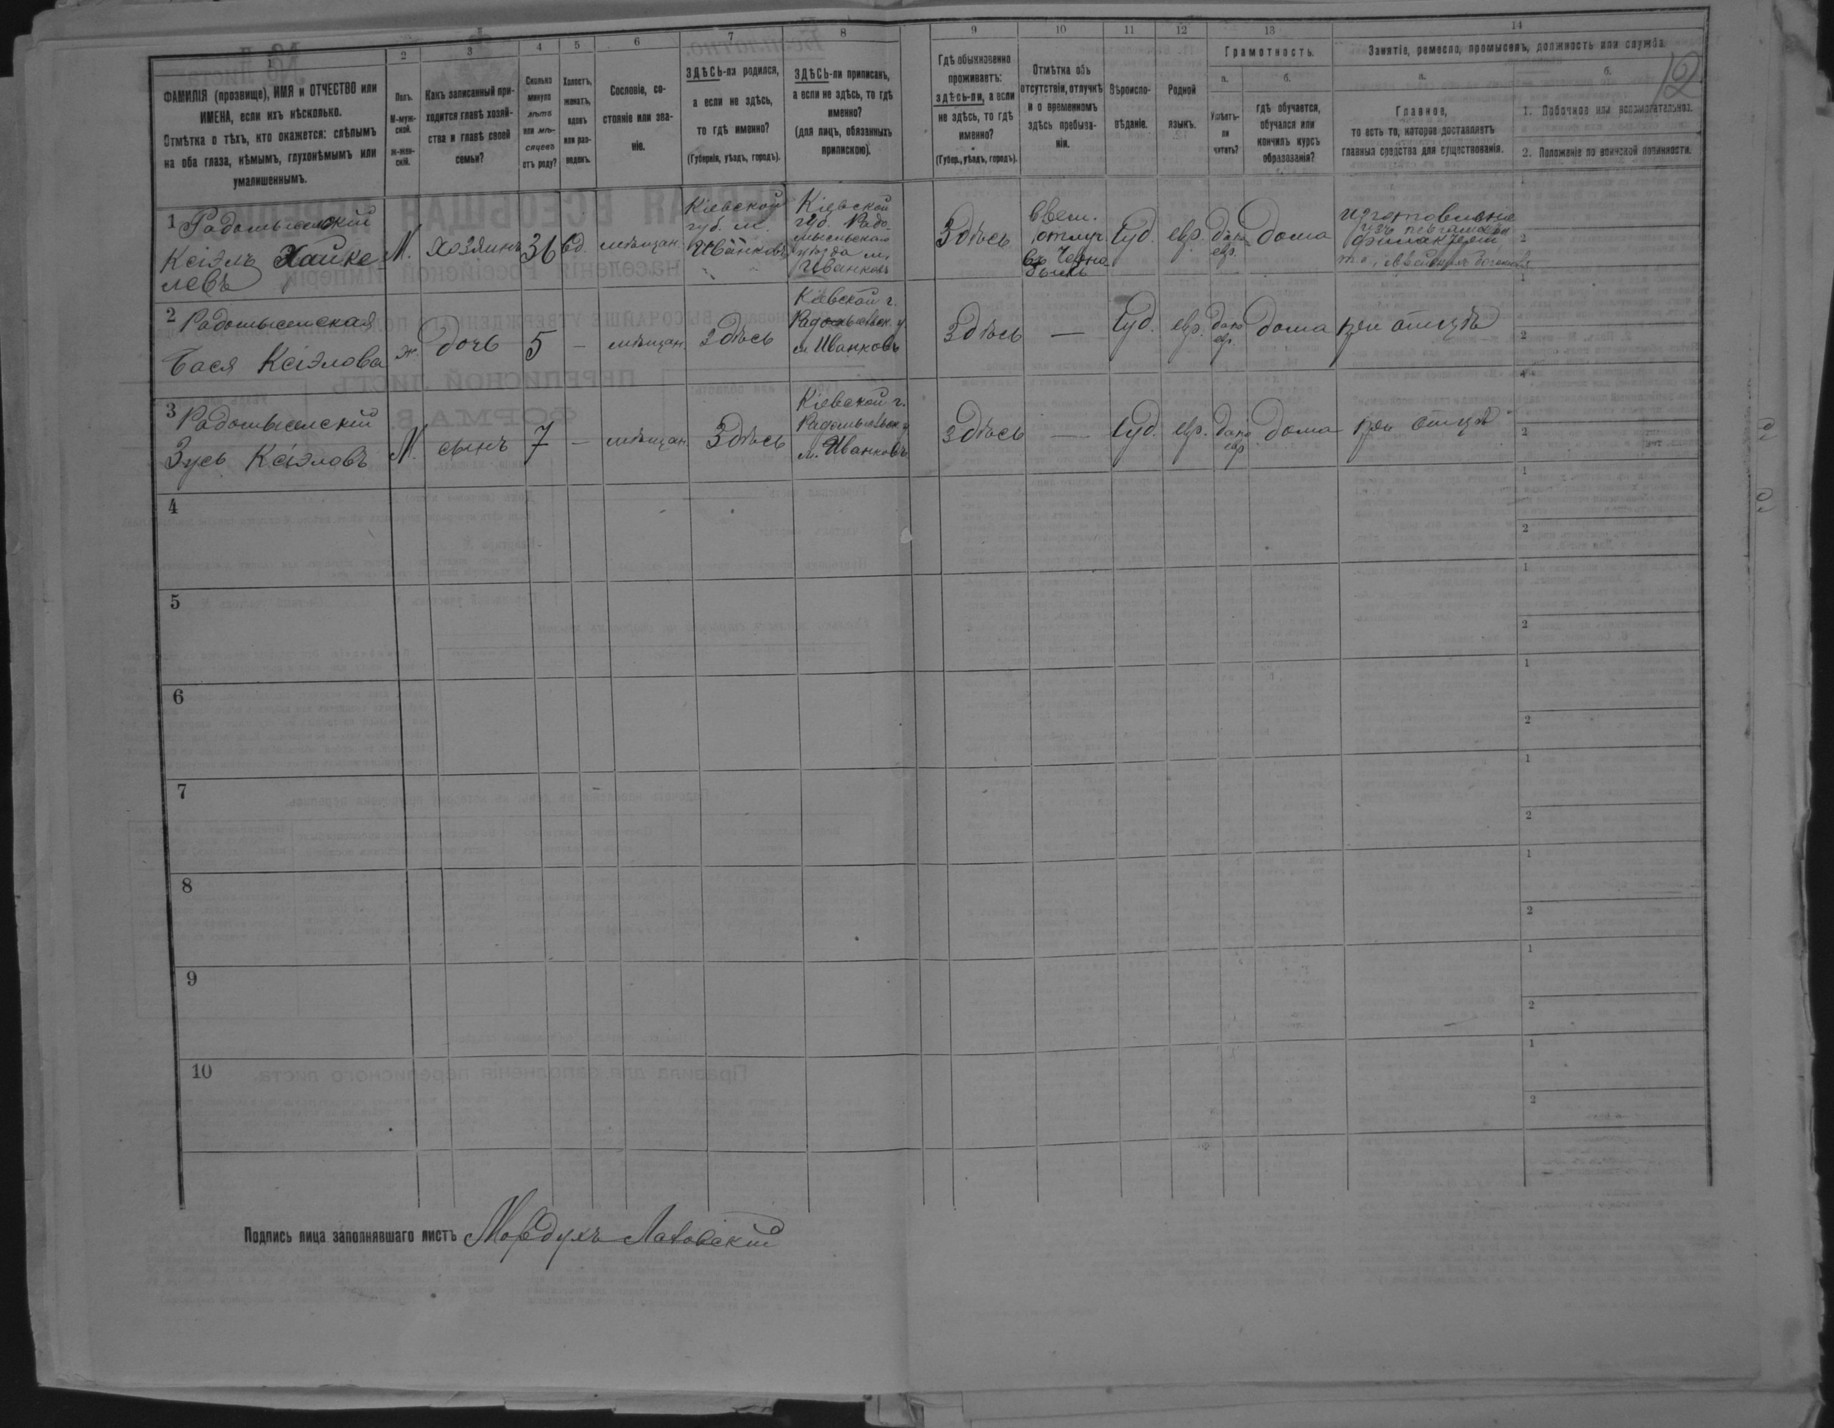 1
ФАМИЛІЯ (прозвище), ИМЯ и ОТЧЕСТВО или
ИМЕНА, если ихъ нѣсколько.
Отмѣтка о тѣхъ, кто окажется: слѣпымъ
на оба глаза, нѣмымъ, глухонѣмымъ или
умалишеннымъ.
2
Полъ.
М-муж-
ской.
ж-жен-
скій.
3
Какъ записанный при-
ходится главѣ хозяй-
ства и главѣ своей
семьи?
4
Сколько
минуло
лѣтъ
или мѣ-
сяцевъ
отъ роду?
5
Холостъ,
женатъ,
вдовъ
или раз-
веденъ.
6
Сословіе, со-
стояніе или зва-
ніе.
7
ЗДѢСЬ-ли родился,
а если не здѣсь,
то гдѣ именно?
(Губернія, уѣздъ, городъ).
8
ЗДѢСЬ-ли приписанъ,
а если не здѣсь, то гдѣ
именно?
(для лицъ, обязанныхъ
припискою).
9
Гдѣ обыкновенно
проживаетъ:
здѣсь-ли, а если
не здѣсь, то гдѣ
именно?
(Губер., уѣздъ, городъ).
10
Отмѣтка объ
отсутствіи, отлучкѣ
и о временномъ
здѣсь пребыва-
ніи.
11
Вѣроиспо-
вѣданіе.
12
Родной
языкъ.
13
Грамотность.
а.
Умѣетъ-
ли
читать?
б.
гдѣ обучается,
обучался или
кончилъ курсъ
образованія?
14
Занятіе, ремесло, промыселъ, должность или служба.
а.
Главное,
то есть то, которое доставляетъ
главныя средства для существованія.
б.
1. Побочное или вспомогательное.
2. Положеніе по воинской повинности.
1 Радомысельскій
Ксіэлъ Хайке-
левъ
М.
хозяинъ
36
вд.
мѣщан.
Кіевской
губ. м.
Иванковъ
Кіевской
губ. Радо
мысльскаго
уѣзда м.
Иванковъ
Здѣсь
врем.
отлуч.
въ Черно
быль
Іуд.
евр.
да по
евр.
дома
изготовленіе
изъ пергамена
2 Радомысельская
Бася Ксіэлова
ж.
дочь
5
—
мѣщан.
Здѣсь
Кіевской г.
Радомысльск. у.
м. Иванковъ
Здѣсь
—
Іуд.
евр.
да по
евр.
дома
при отцѣ
3 Радомысельскій
Зусь Ксіэловъ
М.
сынъ
7
—
мѣщан.
Здѣсь
Кіевской г.
Радомысльск. у
м. Иванковъ
Здѣсь
—
Іуд.
евр.
да по
евр
дома
при отцѣ
4
5
6
7
8
9
10
Подпись лица заполнявшаго листъ Мордухъ